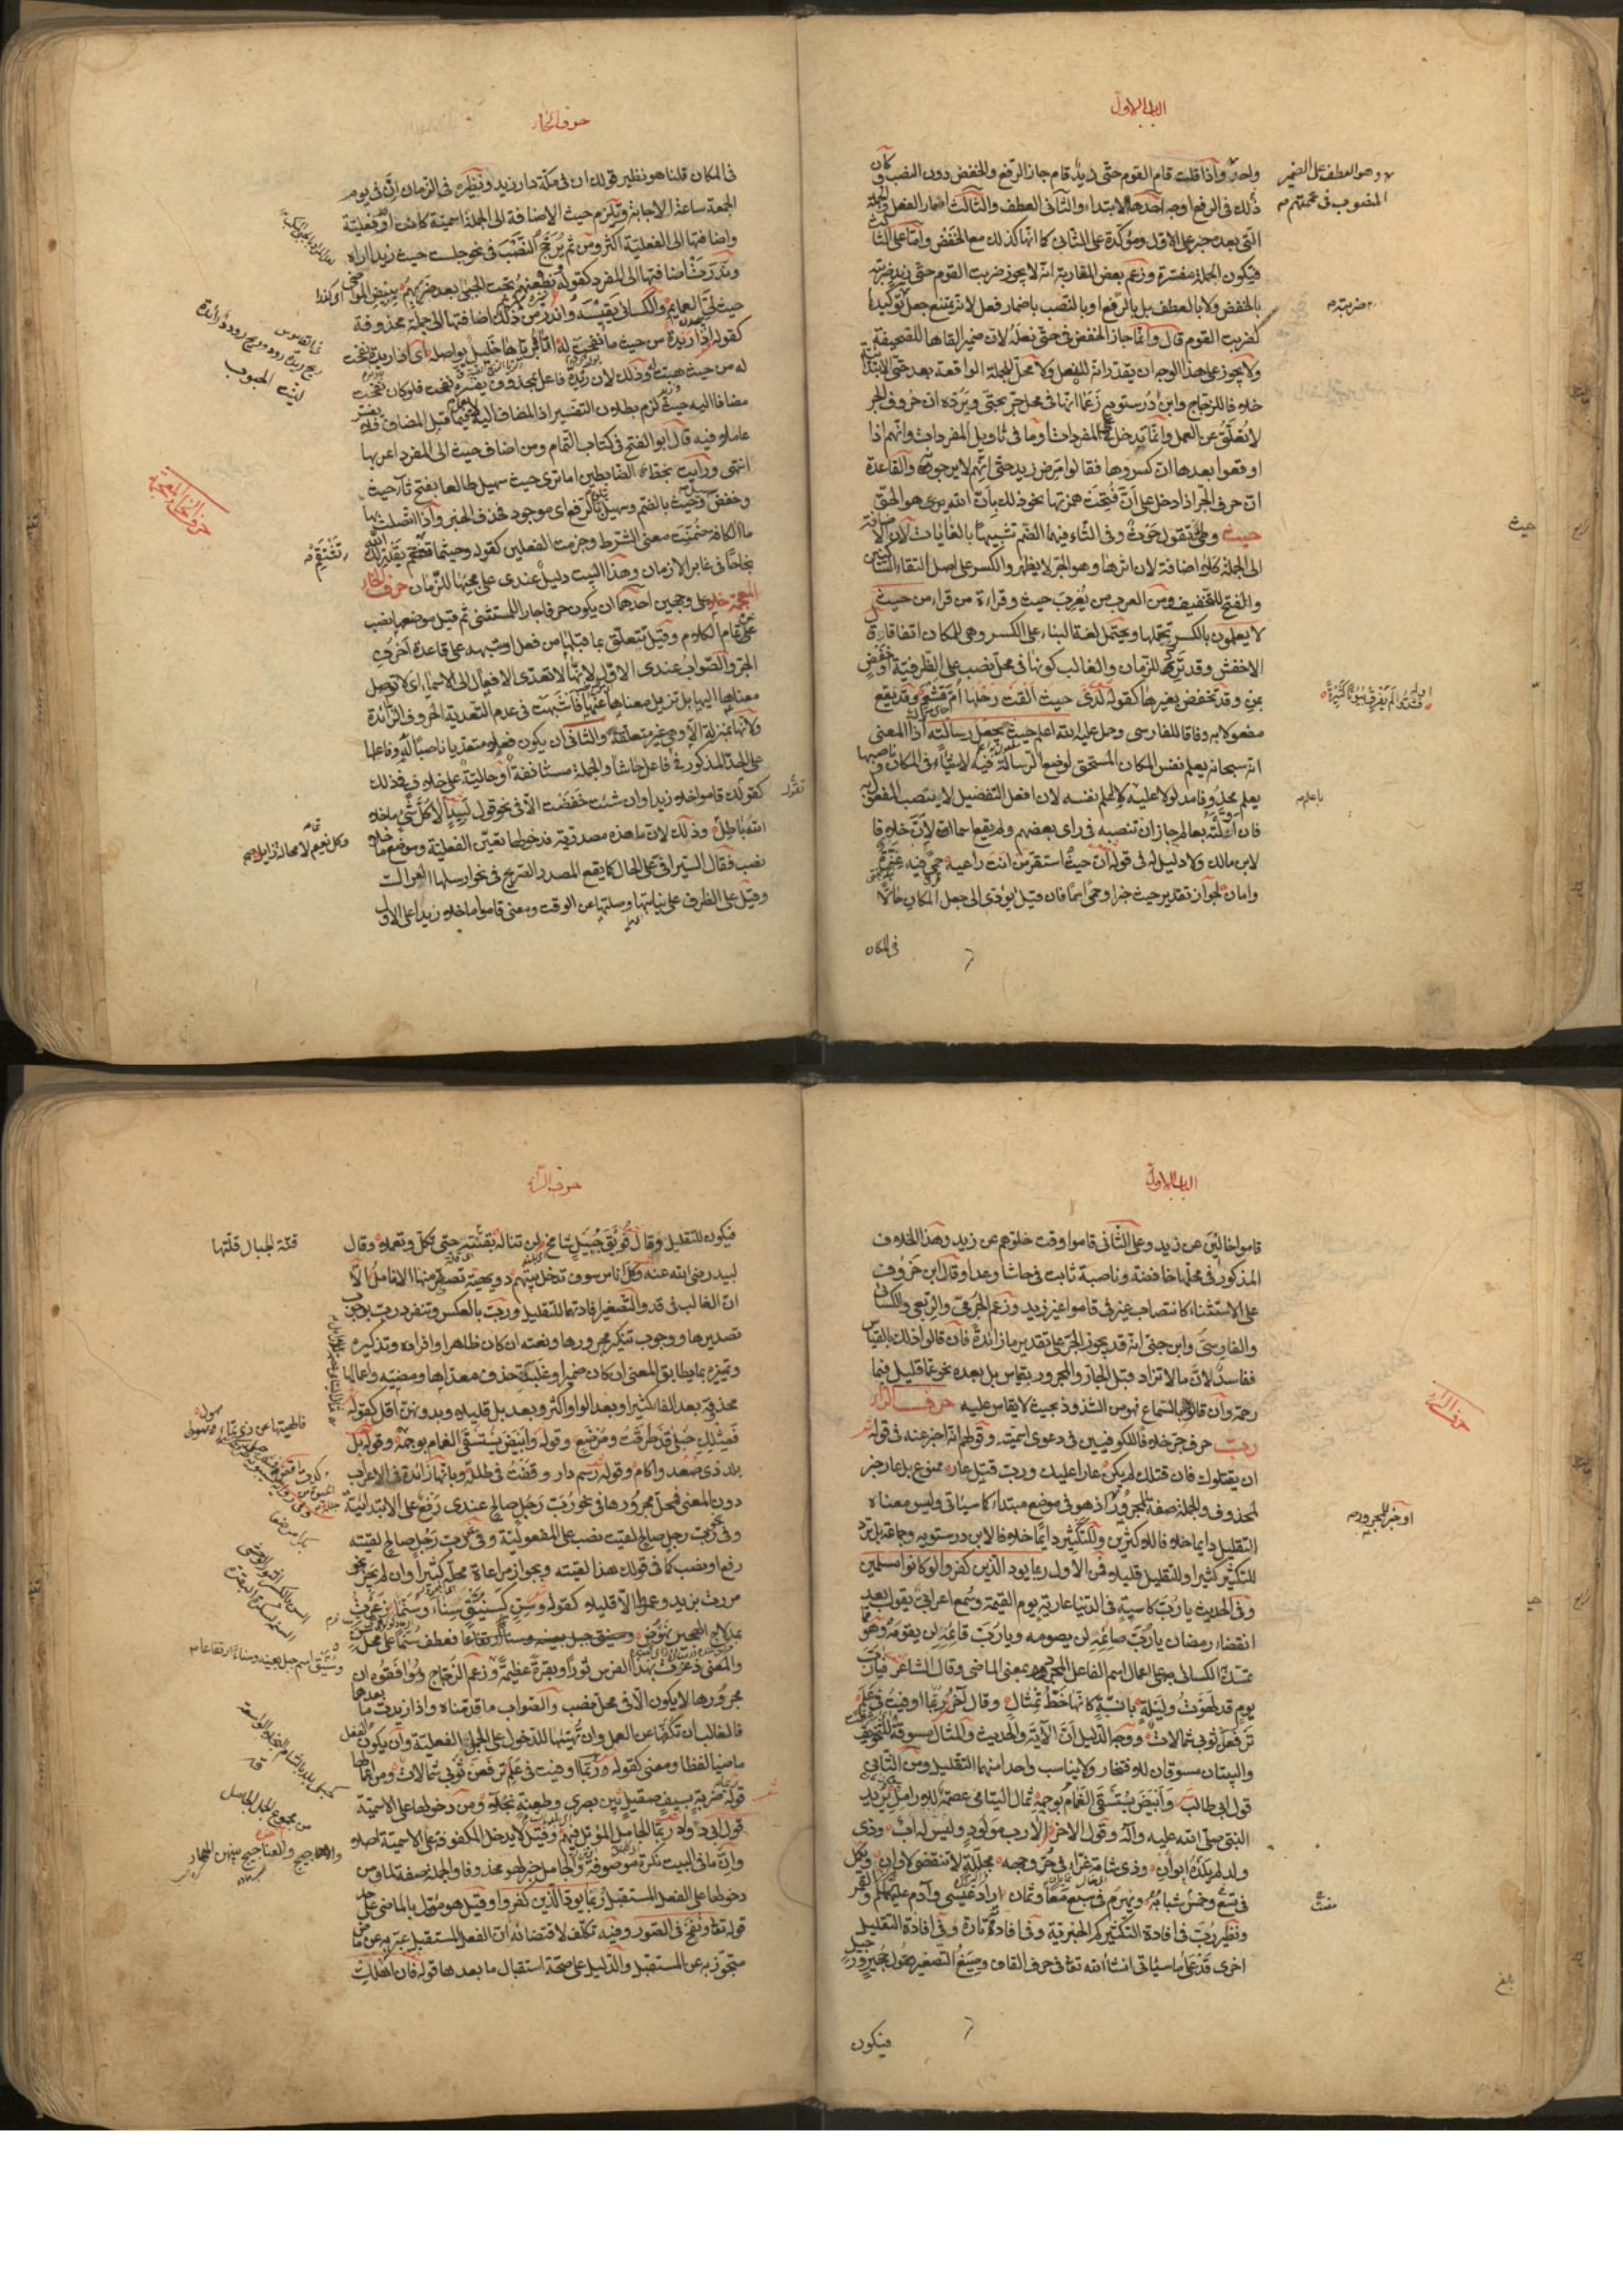 الباب الاول
واحد واذا قلت قام القوم حتى زيد قام جاز الرفع والخفض دون النصب وكان
ذلك في الرفع اوجه احدها الابتداء والثاني العطف والثالث اضمار الفعل والجملة
التي بعدت خبر على الاول ومؤكدة على الثاني كما انها كذلك مع الخفض واما على الثالث
فيكون الجملة مفسرة وزعم بعض المغاربة انه لا يجوز ضربت القوم حتى زيد ضربته
بالخفض ولا بالعطف بل بالرفع او بالنصب باضمار فعل لانه يمتنع جعل توكيدا
لضربت القوم قال وانما جاز الخفض في حتى نعله لان ضمير القاها للصحيفة
ولا يجوز على هذا الوجه ان يقدر انه للفعل ولا محل للجملة الواقعة بعد حتى الابتدائية
خلافا للزجاج وابن درستويه زعما انها في محل جر بحتى ويرده ان حروف الجر
لا تعلق عن العمل وانما تدخل على المفردات او ما في تاويل المفردات وانهم اذا
اوقعوا بعدها ان كسروها فقالوا مرض زيد حتى انهم لا يرجونه والقاعدة
ان حرف الجر اذا دخل على ان فتحت همزتها نحو ذلك بان الله هو الحق
حيث وطي تقول حوث وفي الثاء فيهما الضم تشبيها بالغايات لان الاضافة
الى الجملة كلا اضافة لان اثرها وهو الجر لا يظهر والكسر على اصل التقاء الساكنين
والفتح للتخفيف ومن العرب من يعرب حيث وقراءة من قرا من حيث
لا يعلمون بالكسر تحتملها ويحتمل لغة البناء على الكسر وهي للمكان اتفاقا قال
الاخفش وقد ترد للزمان والغالب كونها في محل نصب على الظرفية او خفض
بمن وقد تخفض بغيرها كقوله لدى حيث القت رحلها ام قشعم وقد يقع
مفعولا به وفاقا للفارسي وحمل عليه الله اعلم حيث يجعل رسالته اذ المعنى
انه سبحانه يعلم نفس المكان المستحق لوضع الرسالة فيه لا شياء في المكان وناصبها
يعلم محذوفا مدلولا عليه باعلم لا باعلم نفسه لان افعل التفضيل لا ينصب المفعول به
فان اولته بعالم جاز ان تنصبه في راى بعضهم ولم يقع اسما لان خلافا
لابن مالك ولا دليل له في قوله ان حيث استقر من انت راعيه حمى فيه عزة وامان
وامان لجواز تقدير حيث خبرا وحمى اسما فان قيل يؤدي الى جعل المكان حالا
في المكان
وهو العطف على الضمير
المنصوب في عممتهم
ضربته
باعلم
حيث
حرف الخاء
في المكان قلنا هو نظير قولك ان في مكة دار زيد ونظيره في الزمان ان في يوم
الجمعة ساعة الاجابة وتلزم حيث الاضافة الى الجملة اسمية كانت او فعلية
واضافتها الى الفعلية اكثر ومن ثم يرجح النصب في نحو جلست حيث زيدا اراه
وندرت اضافتها الى المفرد كقوله ونطعنهم تحت الحبى بعد ضربهم ببيض المواضى
حيث لي العمايم والكسائي يقيسه واندر من ذلك اضافتها الى جملة محذوفة
كقوله اذا ريدة من حيث ما نفحت له اتاه برياها خليل يواصله اى اذا ريدة نفحت
له من حيث هبت وذلك لان ريدة فاعل بمحذوف يفسره نفحت فلو كان نفحت
مضافا اليه حيث لزم بطلان التفسير اذ المضاف اليه لا يعمل فيما قبل المضاف فلا يفسر
عاملا فيه قال ابو الفتح في كتاب التمام ومن اضاف حيث الى المفرد اعربها
انتهى ورايت بخط الضابطين اما ترى حيث سهيل طالعا بفتح ثاء حيث
وخفض سهيل وحيث بالضم وسهيل بالرفع اى موجود فحذف الخبر واذا اتصلت بها
ما الكافة ضمنت معنى الشرط وجزمت الفعلين كقوله وحيثما تستقم يقدر لك الله
نجاحا في غابر الازمان وهذا البيت دليل عندي على مجيئها للزمان حرف الخاء
المعجمة خلا على وجهين احدهما ان يكون حرفا جارا للمستثنى ثم قيل موضعها نصب
عن تمام الكلام وقيل تتعلق بما قبلها من فعل او شبهه على قاعدة احرف
الجر والصواب عندي الاول لانها لا تعدي الافعال الى الاسماء اى لا توصل
معناها اليها بل تزيل معناها عنها فاشبهت في عدم التعدية الحروف الزائدة
ولانها بمنزلة الا وهي غير متعلقة والثاني ان يكون فعلا متعديا ناصبا له وفاعلها
على الحد المذكور في فاعل حاشا والجملة مستانفة او حالية على خلاف في ذلك
كقولك قاموا خلا زيدا وان شئت خفضت الا في نحو قول لبيد الا كل شيء ما خلا
الله باطل وذلك لان ما هذه مصدرية فدخولها تعين الفعلية وموضع ما خلا
نصب فقال السيرافي على الحال كما يقع المصدر الصريح في نحو ارسلها العراك
وقيل على الظرف على نيابتها وصلتها عن الوقت ومعنى قاموا ما خلا زيدا على الاول
ريح ريدة رود وريح رود ورائدة
لينة الهبوب
حرف الخاء المعجمة
وكل نعيم لا محالة زايل
الباب الاول
قاموا خالين عن زيد وعلى الثاني قاموا وقت خلوهم عن زيد وهذا الخلاف
المذكور في محلها خافضة وناصبة ثابت في حاشا وعدا وقال ابن خروف
على الاستثناء كانتصاب غير في قاموا غير زيد وزعم الجرمي والربعي والكسائي
والفارسي وابن جني انه قد يجوز الجر على تقدير ما زائدة فان قالوا ذلك بالقياس
ففاسد لان ما لا تزاد قبل الجار والمجرور بقياس بل بعده نحو عما قليل فبما
رحمة وان قالوا بالسماع فهو من الشذوذ بحيث لا يقاس عليه حرف الراء
رب حرف جر خلافا للكوفيين في دعوى اسميته وقولهم انه اخبر عنه في قوله
ان يقتلوك فان قتلك لم يكن عارا عليك ورب قتل عار ممنوع بل عار خبر
لمحذوف والجملة صفة للمجرور اذ هو في موضع مبتداء كما سياتي وليس معناه
التقليل دايما خلافا للاكثرين ولا التكثير دايما خلافا لابن درستويه وجماعة بل ترد
للتكثير كثيرا وللتقليل قليلا فمن الاول ربما يود الذين كفروا لو كانوا مسلمين
وفي الحديث يا رب كاسية في الدنيا عارية يوم القيمة وسمع اعرابي يقول بعد
انقضاء رمضان يا رب صائمه لن يصومه ويا رب قائمه لن يقومه وهو مما
تمسك الكسائي على اعمال اسم الفاعل المجرد بمعنى الماضى وقال الشاعر فيا رب
يوم قد لهوت وليلة بانسة كانها خط تمثال وقال آخر ربما اوفيت في علم
ترفعن ثوبي شمالات ووجه الدليل ان الآية والحديث والمثال مسوقة للتخويف
والبيتان مسوقان للافتخار ولا يناسب واحدا منهما التقليل ومن الثاني
قول ابي طالب وابيض يستسقى الغمام بوجهه ثمال اليتامى عصمة للارامل يريد
النبي صلى الله عليه وآله وقول الاخر الا رب مولود وليس له اب وذي
ولد لم يلده ابوان وذي شامة غراء في حر وجهه مجللة لا تنقضي لاوان ويكمل
في تسع وخمس شبابه ويهرم في سبع معا وثمان اراد عيسى وآدم عليهما السلام والقمر
ونظير رب في افادة التكثير كم الخبرية وفي افادته تارة وفي افادة التقليل
اخرى قد على ما سياتي ان شاء الله تعالى في حرف القاف وصيغ التصغير تقول حجير ورجيل
فيكون
او خبر للمجرور
حرف الراء
بلغ
حرف الراء
فيكون للتقليل وقال فويق جبيل شامخ لن تناله بقنته حتى تكل وتعملا وقال
لبيد رضى الله عنه وكل اناس سوف تدخل بينهم دويهية تصفر منها الانامل الا
ان الغالب في قد والتصغير افادتهما للتقليل ورب بالعكس وتنفرد رب بوجوب
تصديرها ووجوب تنكير مجرورها ونعته ان كان ظاهرا وافراده وتذكيره
وتمييزه بما يطابق المعنى ان كان ضميرا وغلبة حذف معداها ومضيه واعمالها
محذوفة بعد الفاء كثيرا وبعد الواو اكثر وبعد بل قليلا وبدونهن اقل كقوله
فمثلك حبلى قد طرقت ومرضع وقوله وابيض يستسقى الغمام بوجهه وقوله بل
بلد ذي صعد واكام وقوله رسم دار وقفت في طلله وبانها زائدة في الاعراب
دون المعنى فمحل مجرورها في نحو رب رجل صالح عندي رفع على الابتدائية
وفي نحو رب رجل صالح لقيت نصب على المفعولية وفي نحو رب رجل صالح لقيته
رفع او نصب كما في قولك هذا لقيته ويجوز مراعاة محله كثيرا وان لم يجز نحو
مررت بزيد وعمرا الا قليلا كقوله وسن كسنيق سناء وسنما ذعرت
بمدلاج الهجير نهوض وسنيق جبل بعينه وسناء ارتفاعا فعطف سنما على محل سن
والمعنى ذعرت بهذا الفرس ثورا وبقرة عظيمة وزعم الزجاج وموافقوه ان
مجرورها لا يكون الا في محل نصب والصواب ما قدمناه واذا زيدت ما بعدها
فالغالب ان تكفها عن العمل وان تهيئها للدخول على الجمل الفعلية وان يكون الفعل
ماضيا لفظا ومعنى كقوله ربما اوفيت في علم ترفعن ثوبي شمالات ومن اعمالها
قوله ربما ضربة بسيف صقيل بين بصرى وطعنة نجلاء ومن دخولها على الاسمية
قول ابي دواد ربما الجامل المؤبل فيهم وقيل لا يدخل المكفوفة على الاسمية اصلا
وان ما في البيت نكرة موصوفة والجامل خبر لهو محذوفا والجملة صفة لما ومن
دخولها على الفعل المستقبل ربما يود الذين كفروا وقيل هو مؤول بالماضي على حد
قوله تعالى ونفخ في الصور وفيه تكلف لاقتضائه ان الفعل المستقبل عبر به عن ماض
متجوز به عن المستقبل والدليل على صحة استقبال ما بعدها قوله فان اهلك
قنة الجبال قلتها
وسنيق اسم جبل بعينه وسناء ارتفاعا